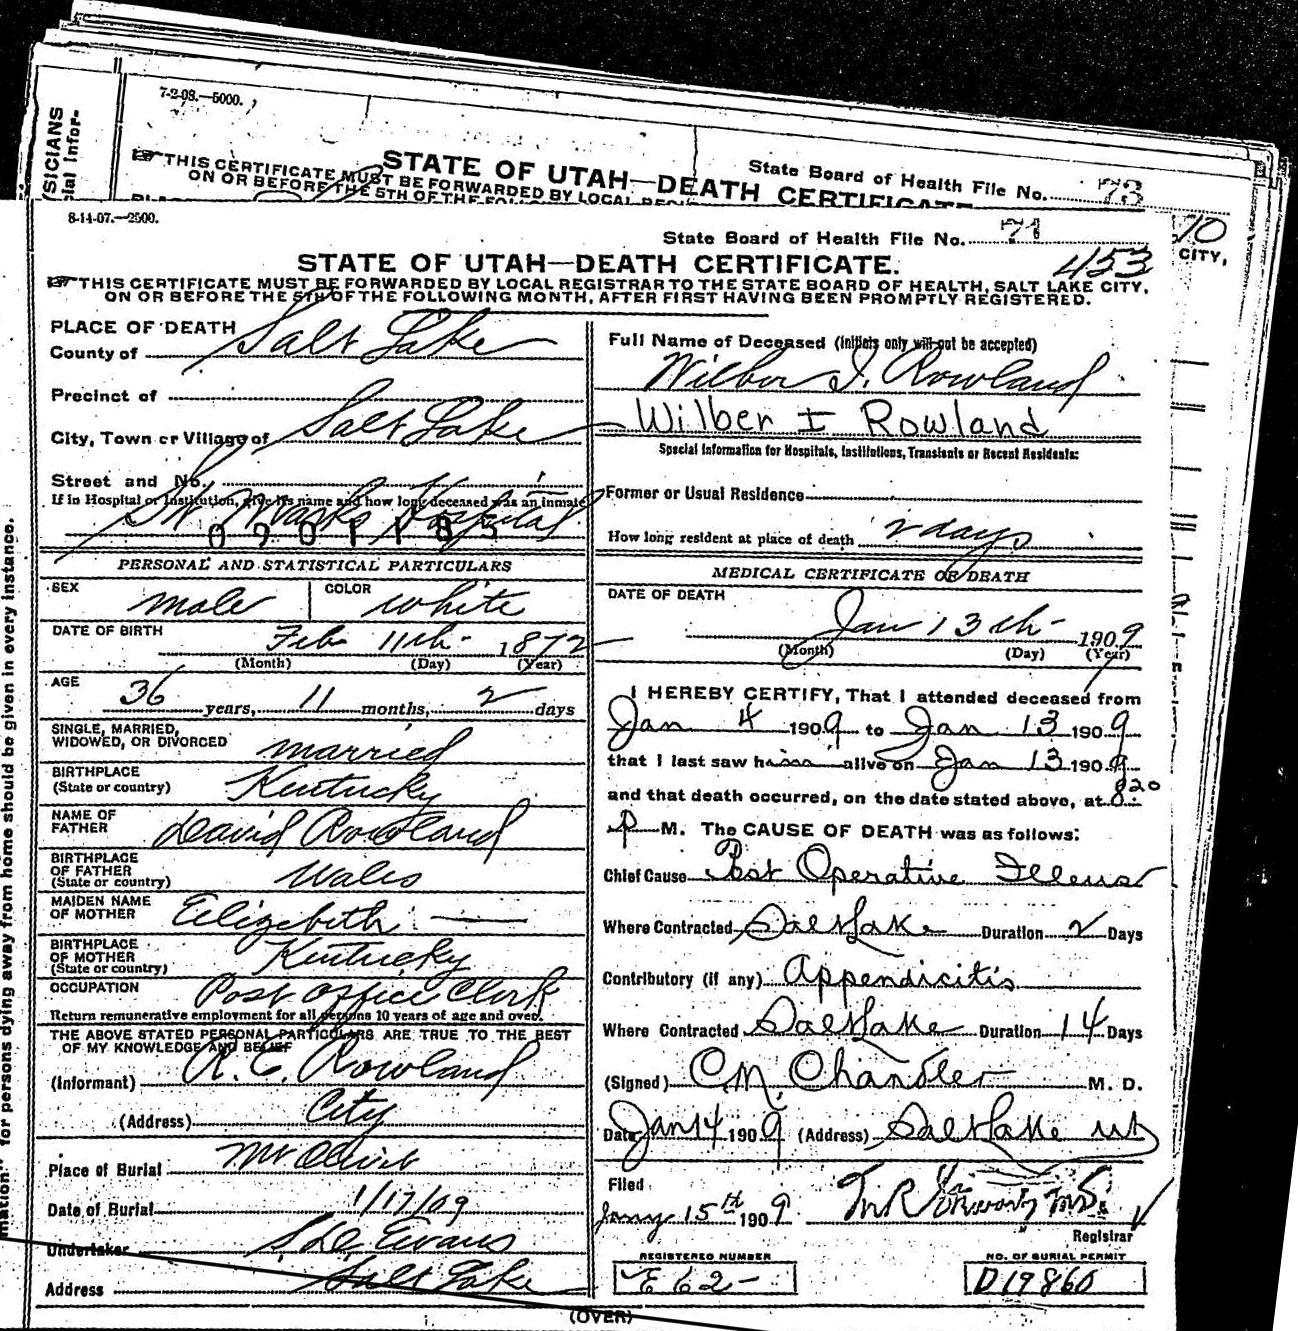 7-2-08.—5000.
State Board of Health File No. 73
STATE OF UTAH—DEATH CERTIFICATE
THIS CERTIFICATE MUST BE FORWARDED BY LOCAL
ON OR BEFORE THE 5TH OF THE
SICIANS
cial Infor-
10
CITY,
8-14-07.—2500.
State Board of Health File No. 71
453
STATE OF UTAH—DEATH CERTIFICATE.
THIS CERTIFICATE MUST BE FORWARDED BY LOCAL REGISTRAR TO THE STATE BOARD OF HEALTH, SALT LAKE CITY,
ON OR BEFORE THE 5TH OF THE FOLLOWING MONTH, AFTER FIRST HAVING BEEN PROMPTLY REGISTERED.
PLACE OF DEATH
County of Salt Lake
Precinct of
City, Town or Village of Salt Lake
Street and No.
If in Hospital or Institution, give its name and how long deceased was an inmate
St Marks Hospital
0901185
PERSONAL AND STATISTICAL PARTICULARS
SEX male COLOR white
DATE OF BIRTH Feb 11th 1872
(Month) (Day) (Year)
AGE 36 years, 11 months, 2 days
SINGLE, MARRIED,
WIDOWED, OR DIVORCED married
BIRTHPLACE
(State or country) Kentucky
NAME OF
FATHER David Rowland
BIRTHPLACE
OF FATHER
(State or country) Wales
MAIDEN NAME
OF MOTHER Elizabeth —
BIRTHPLACE
OF MOTHER
(State or country) Kentucky
OCCUPATION Post Office Clerk
Return remunerative employment for all persons 10 years of age and over.
THE ABOVE STATED PERSONAL PARTICULARS ARE TRUE TO THE BEST
OF MY KNOWLEDGE AND BELIEF
(Informant) R. E. Rowland
(Address) City
Place of Burial Mt Olivet
Date of Burial 1/17/09
Undertaker Evans
Address Salt Lake
Full Name of Deceased (Initials only will not be accepted)
Wilber I. Rowland
Wilber I Rowland
Special Information for Hospitals, Institutions, Transients or Recent Residents:
Former or Usual Residence
How long resident at place of death 2 days
MEDICAL CERTIFICATE OF DEATH
DATE OF DEATH
Jan 13th 1909
(Month) (Day) (Year)
I HEREBY CERTIFY, That I attended deceased from
Jan 4 1909 to Jan 13 1909
that I last saw him alive on Jan 13 1909
and that death occurred, on the date stated above, at 8:20
P M. The CAUSE OF DEATH was as follows:
Chief Cause Post Operative Illeus
Where Contracted Salt Lake Duration 2 Days
Contributory (if any) Appendicitis
Where Contracted Salt Lake Duration 14 Days
(Signed) C M Chandler M. D.
Date Jan 14 1909 (Address) Salt Lake Ut
Filed
Jany 15th 1909
Registrar
REGISTERED NUMBER
E 62
NO. OF BURIAL PERMIT
D19860
(OVER)
mation" for persons dying away from home should be given in every instance.